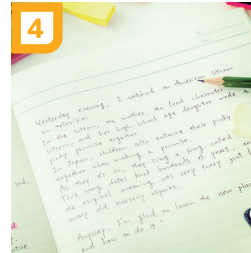 4
Yesterday evening, I watched an American sitcom
on television.
In the sitcom, the mother, the lead character
sitcom, and her high school age daughter made a
pinky promise together.
In Japan, children also entwine their pinky
together when making a promise.
As they do so, they sing a song called
This song dates back hundreds of years, and
the original meaning was very scary just l
many old nursery rhymes.
Anyway, I'm glad to learn the new phra
and how to do it!